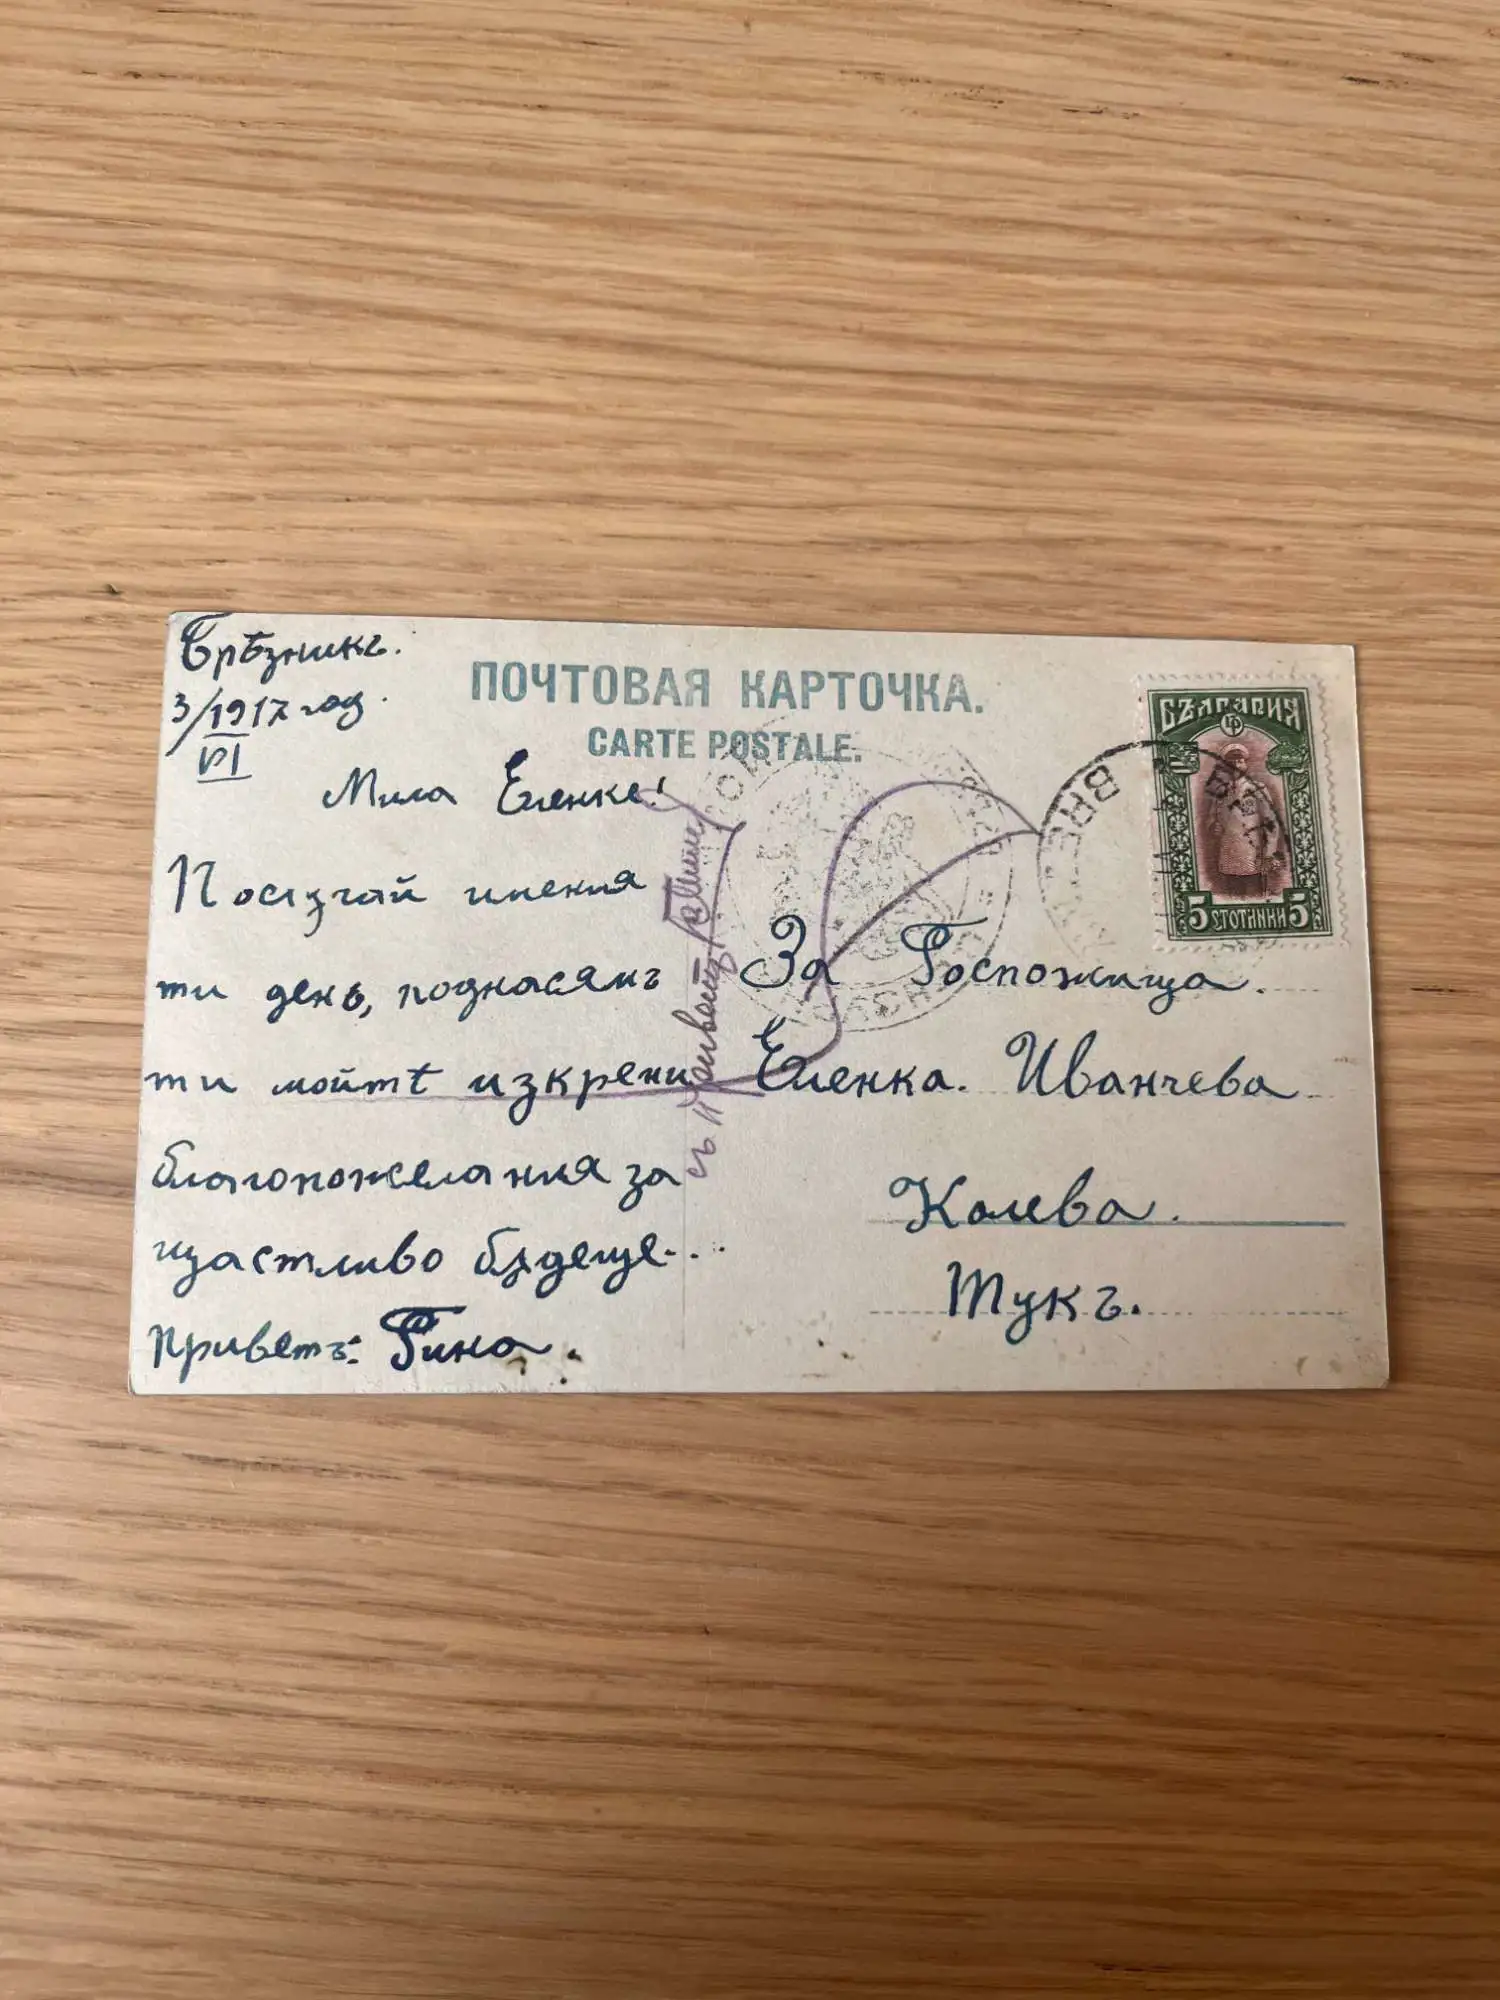 Брѣзникъ.
3/VI 1917 год.
ПОЧТОВАЯ КАРТОЧКА.
CARTE POSTALE.
БЪЛГАРИЯ
5 СТОТИНКИ 5
BRE
Мила Еленке!
Послучай имения
ти день, поднасямъ
ти моитѣ искрени
благопожелания за
щастливо бѫдеще...
Приветъ: Гина.
За Госпожица
Еленка. Иванчева
Колева.
Тукъ.